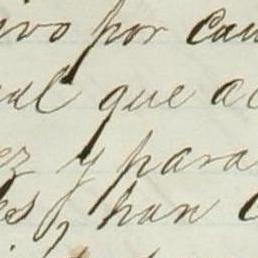 ivo por cau
ual que ac
ez y para
es, han